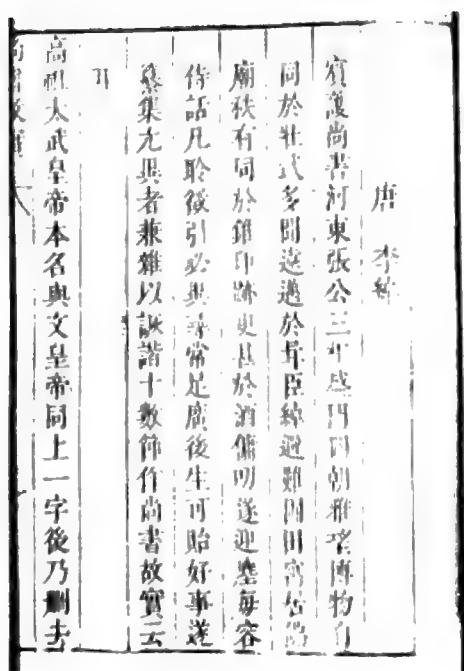 唐 李綽
賓護尚書河東張公三相盛門四朝雅望博物自
同於壯武多聞遠邁於胥臣綽避難圃田寓居
廟秩有同於錐印跡更甚於酒傭叨遂迎塵每容
侍話凡聆徵引必異尋常足廣後生可貽好事遂
纂集尤異者兼雜以詼諧十數節作尚書故實云
耳
高祖太武皇帝本名與文皇帝同上一字後乃刪去